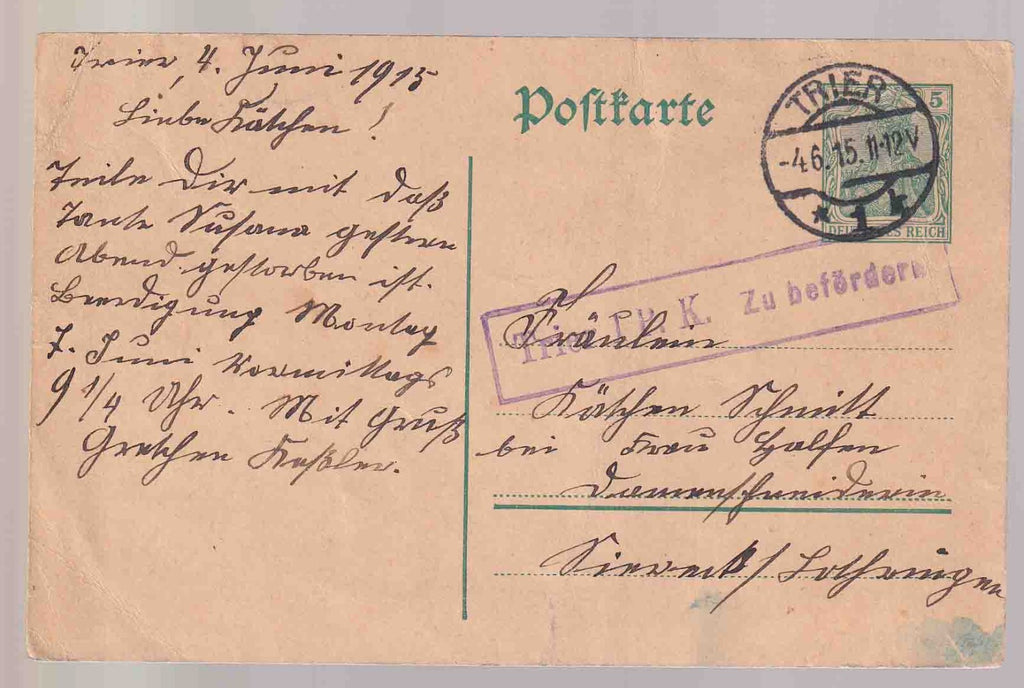 Trier, 4. Juni 1915
Liebe Kätchen!
Teile Dir mit daß
Tante Susana gestern
Abend gestorben ist.
Beerdigung Montag
7. Juni Vormittags
9 1/4 Uhr. Mit Gruß
Gretchen Keßler.
Postkarte
TRIER
-4.6.15.11-12V
* 1 *
5
DEUTSCHES REICH
Trier P. K. Zu befördern
Fräulein
Kätchen Schmitt
bei Frau Halfen
Damenschneiderin
Sierck / Lothringen